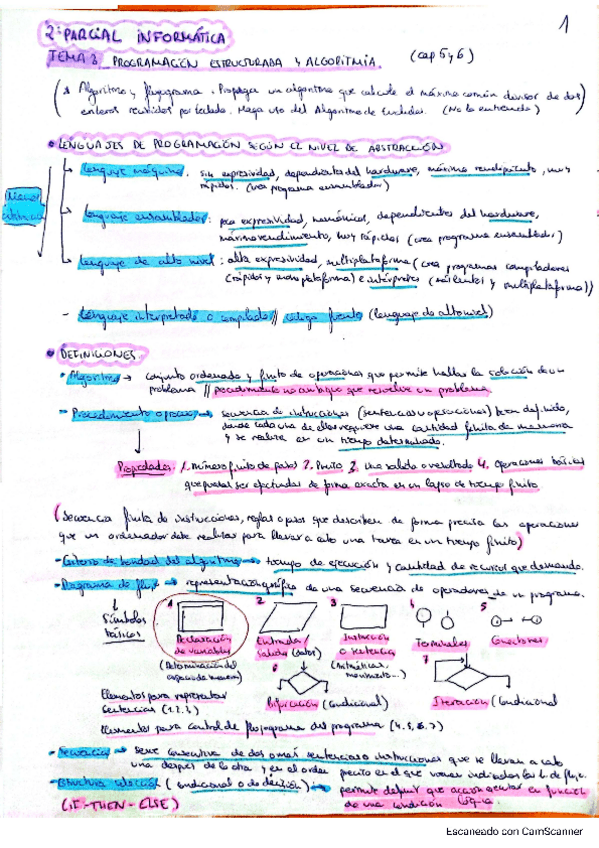 2º PARCIAL INFORMÁTICA
1
TEMA 3. PROGRAMACIÓN ESTRUCTURADA Y ALGORITMIA. (cap 5 y 6)
(* Algoritmo y flujograma. Propongo un algoritmo que calcule el máximo común divisor de dos
enteros recibidos por teclado. Haga uso del Algoritmo de Euclides. (No lo entiendo)
• LENGUAJES DE PROGRAMACIÓN SEGÚN EL NIVEL DE ABSTRACCIÓN
→ Lenguaje máquina: sin expresividad, dependiente del hardware, máximo rendimiento, muy
rápidos. (crea programa ensamblador)
→ Lenguaje ensamblador: poca expresividad, numónico, dependientes del hardware,
máximo rendimiento, muy rápidos (crea programa ensamblador)
→ Lenguaje de alto nivel: alta expresividad, multiplataforma (crea programas compiladores
(rápidos y monoplataforma) e intérpretes (más lentos y multiplataforma))
- Lenguaje interpretado o compilado // código fuente (lenguaje de alto nivel)
• DEFINICIONES.
• Algoritmo → conjunto ordenado y finito de operaciones que permite hallar la solución de un
problema // procedimiento no ambiguo que resuelve un problema
• Procedimiento → secuencia de instrucciones (sentencias u operaciones) bien definido,
donde cada una de ellas requiere una cantidad finita de memoria
y se realiza en un tiempo determinado.
Propiedades: 1. Número finito de pasos 2. Finito 3. Una salida o resultado 4. Operaciones básicas
que puedan ser efectuadas de forma exacta en un lapso de tiempo finito
(Secuencia finita de instrucciones, reglas o pasos que describen de forma precisa las operaciones
que un ordenador debe realizar para llevar a cabo una tarea en un tiempo finito)
- Criterio de bondad del algoritmo → tiempo de ejecución y cantidad de recursos que demanda.
- Diagrama de flujo → representación gráfica de una secuencia de operaciones de un programa.
Símbolos
básicos
1 2 3 4 5
Declaración
de variables
Entrada/
salida (datos)
Instrucción
o sentencia
Terminales
Conectores
(Determinación del
espacio de memoria)
(Aritméticas,
movimiento...)
6
7
Bifurcación (condicional)
Iteración (condicional
Elementos para representar
sentencias (1,2,3)
Elementos para control de flujo del programa (4, 5, 6, 7)
- Secuencia → serie consecutiva de dos o más sentencias o instrucciones que se llevan a cabo
una después de la otra y en el orden preciso en el que vienen indicados las de flujo.
- Estructura selección (condicional o de decisión) → permite definir que acción ejecutar en función
(IF-THEN-ELSE) de una condición lógica.
Escaneado con CamScanner